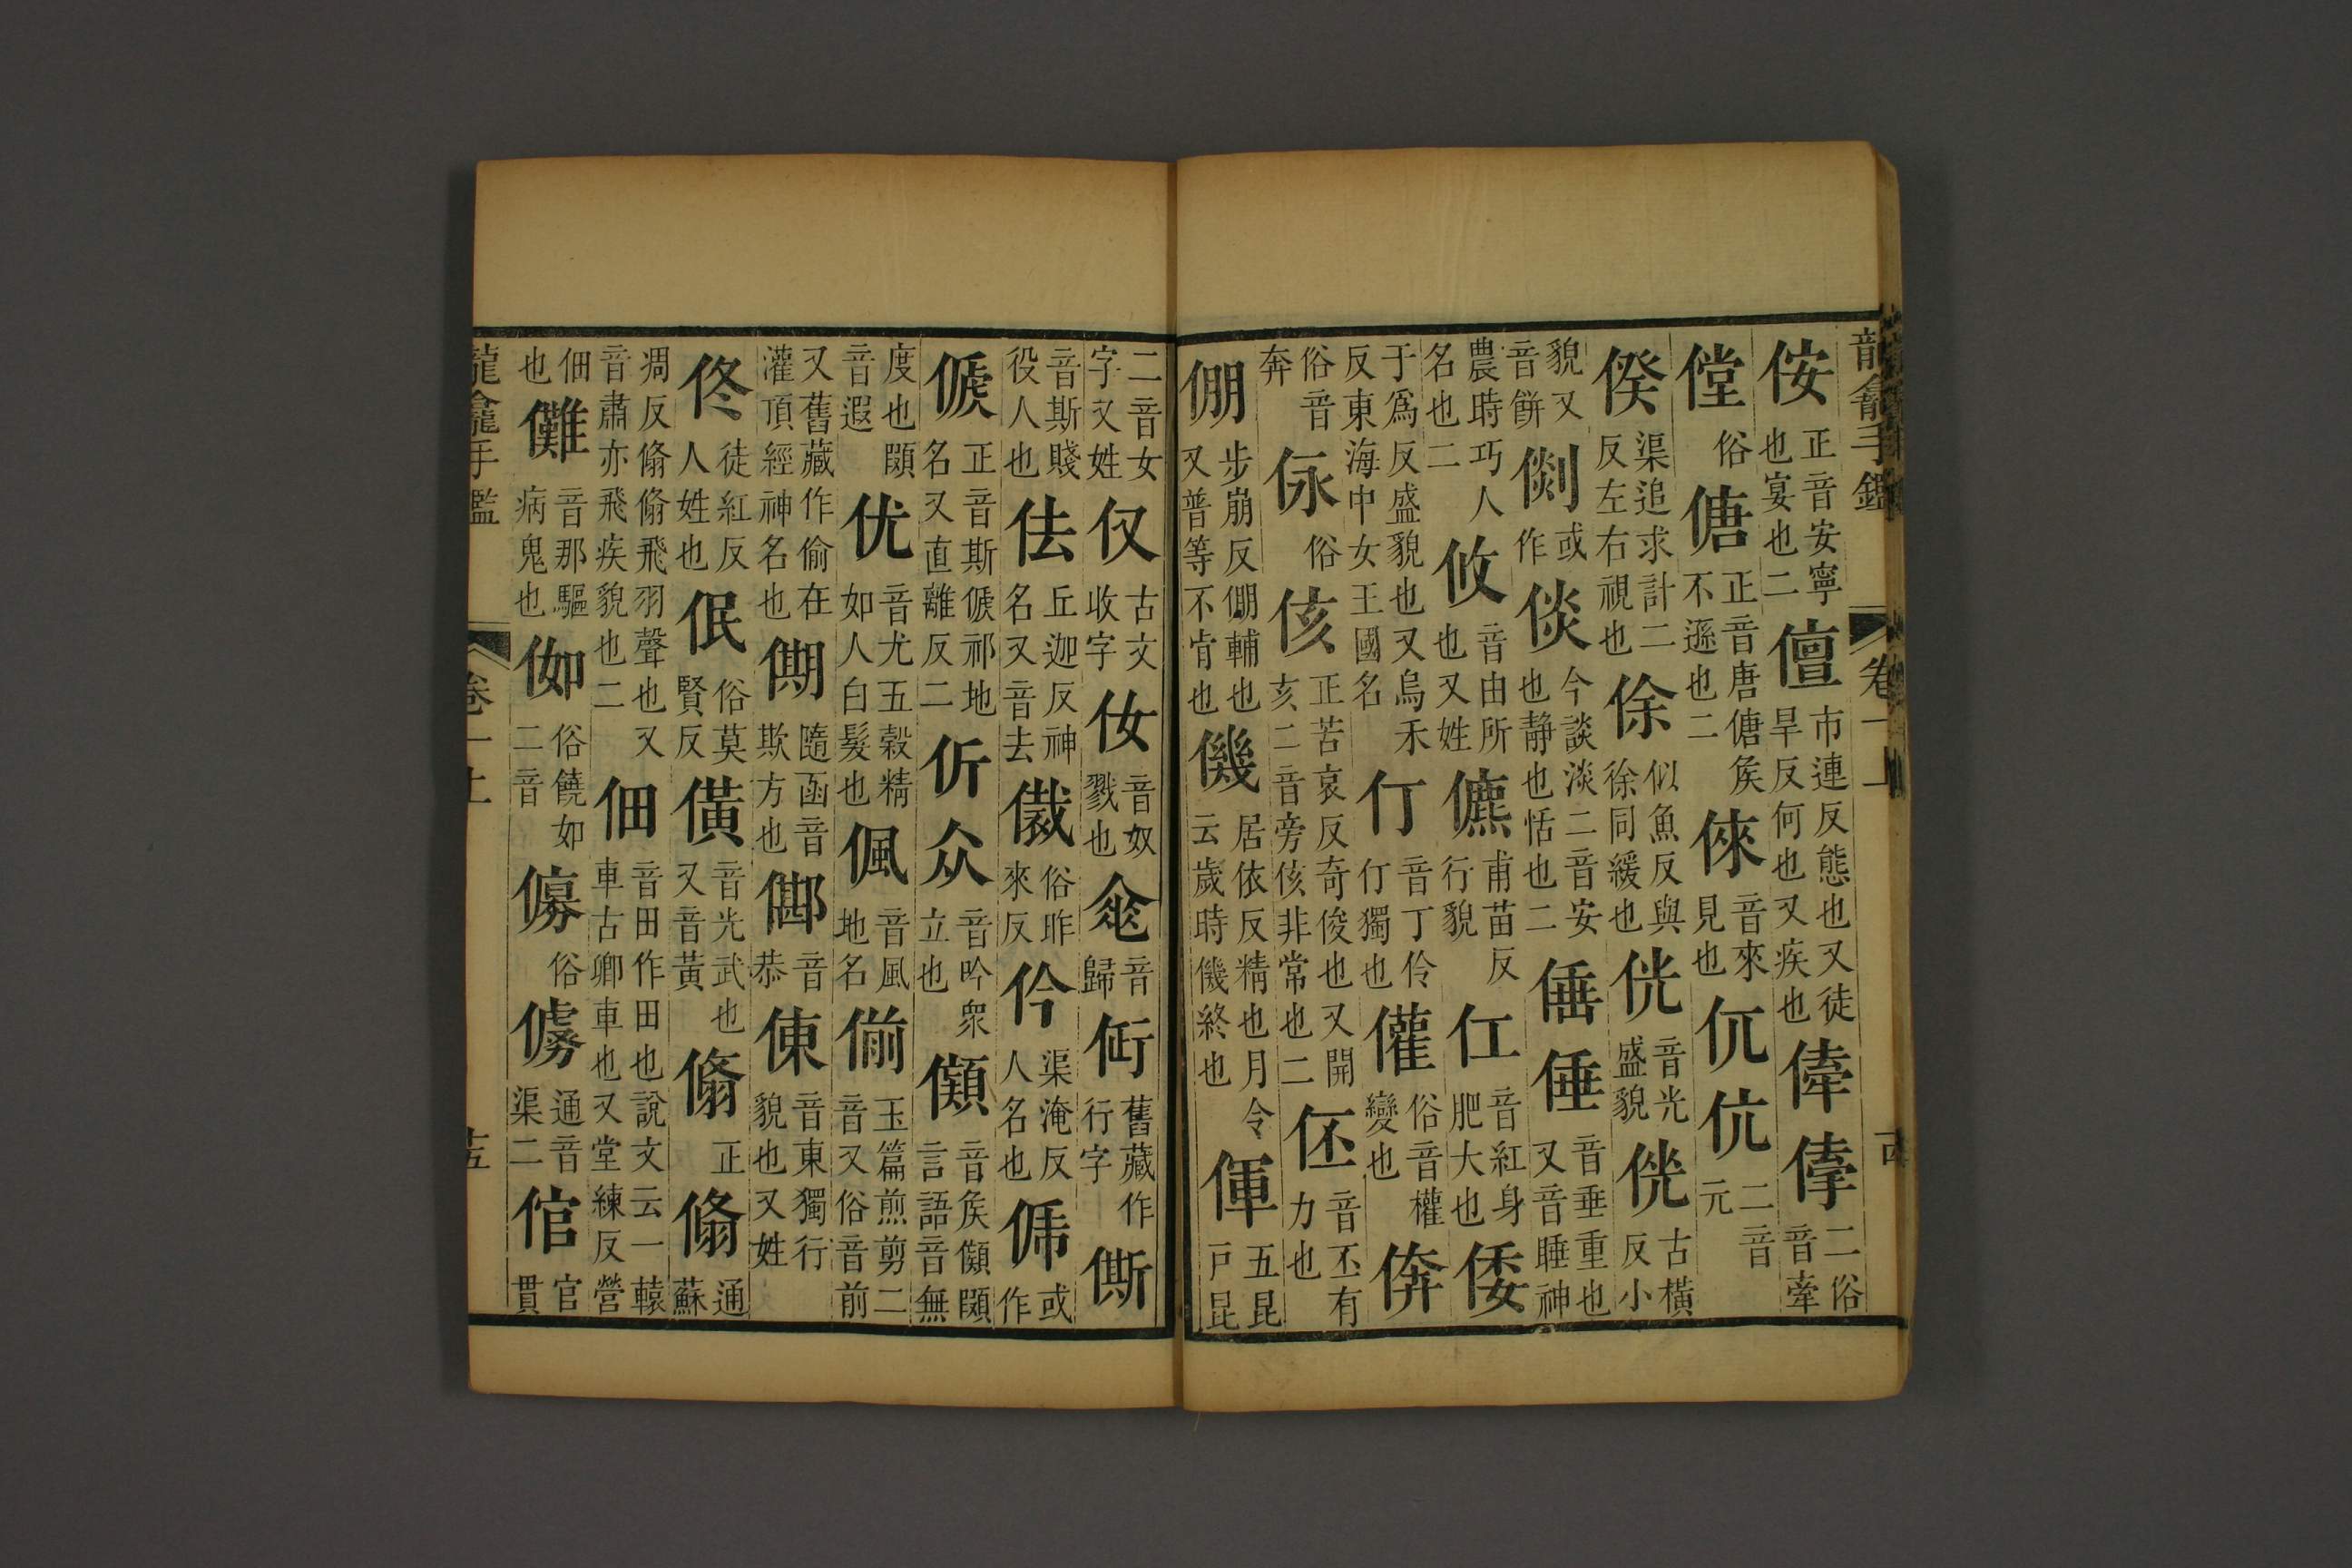 龍龕手鑑 卷一上 十四
侒正音安寧也宴也二儃市連反態也又徒旱反何也又疾也㒓𠌫二俗音牽
㑽俗傏正音唐傏㑨不遜也二倈音來見也㐾伉二音元
㑧渠追求計二反左右視也俆似魚反與徐同緩也侊音光盛貌侊古橫反小
貌又音餅㒧或作倓今談淡二音安也靜也恬也二𠌥倕音垂重也又音睡神
農時巧人名也二攸音由所也又姓儦甫苗反行貌仜音紅身肥大也倭
于爲反盛貌也又烏禾反東海中女王國名仃音丁伶仃獨也㒛俗音權變也㑟
俗音奔㑐俗侅正苦哀反奇俊也又開亥二音旁侅非常也二伾音丕有力也
倗步崩反倗輔也又普等不肯也僟居依反精也月令云歲時僟終也㑮五昆戸昆
二音女字又姓㐴古文收字伮音奴戮也㒫音歸䘕舊藏作行字㒋
音斯賤役人也佉丘迦反神名又音去儎俗昨來反伶渠淹反人名也俙或作
傂正音斯傂祁地名又直離反二㑂㐺音吟衆立也𠐵音矦𠐵䫲言語音無
度也䫲音遐优音尤五穀精如人白髮也偑音風地名偂玉篇煎剪二音又俗音前
又舊藏作偷在灌頂經神名也僛隨函音欺方也㒀音恭倲音東獨行貌也又姓
佟徒紅反人姓也㑉俗莫賢反僙音光武也又音黃翛正翛通蘇
凋反翛翛飛羽聲也又音肅亦飛疾貌也二佃音田作田也說文云一轅車古卿車也又堂練反營
佃也儺音那驅病鬼也㑚俗饒如二音㒔俗㒓通音渠二倌官貫
龍龕手鑑 卷一上 十五